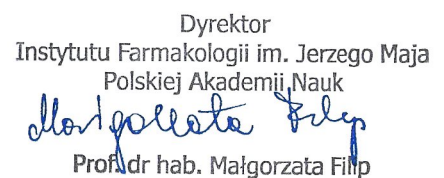 Dyrektor
Instytutu Farmakologii im. Jerzego Maja
Polskiej Akademii Nauk
Małgorzata Filip
Prof. dr hab. Małgorzata Filip